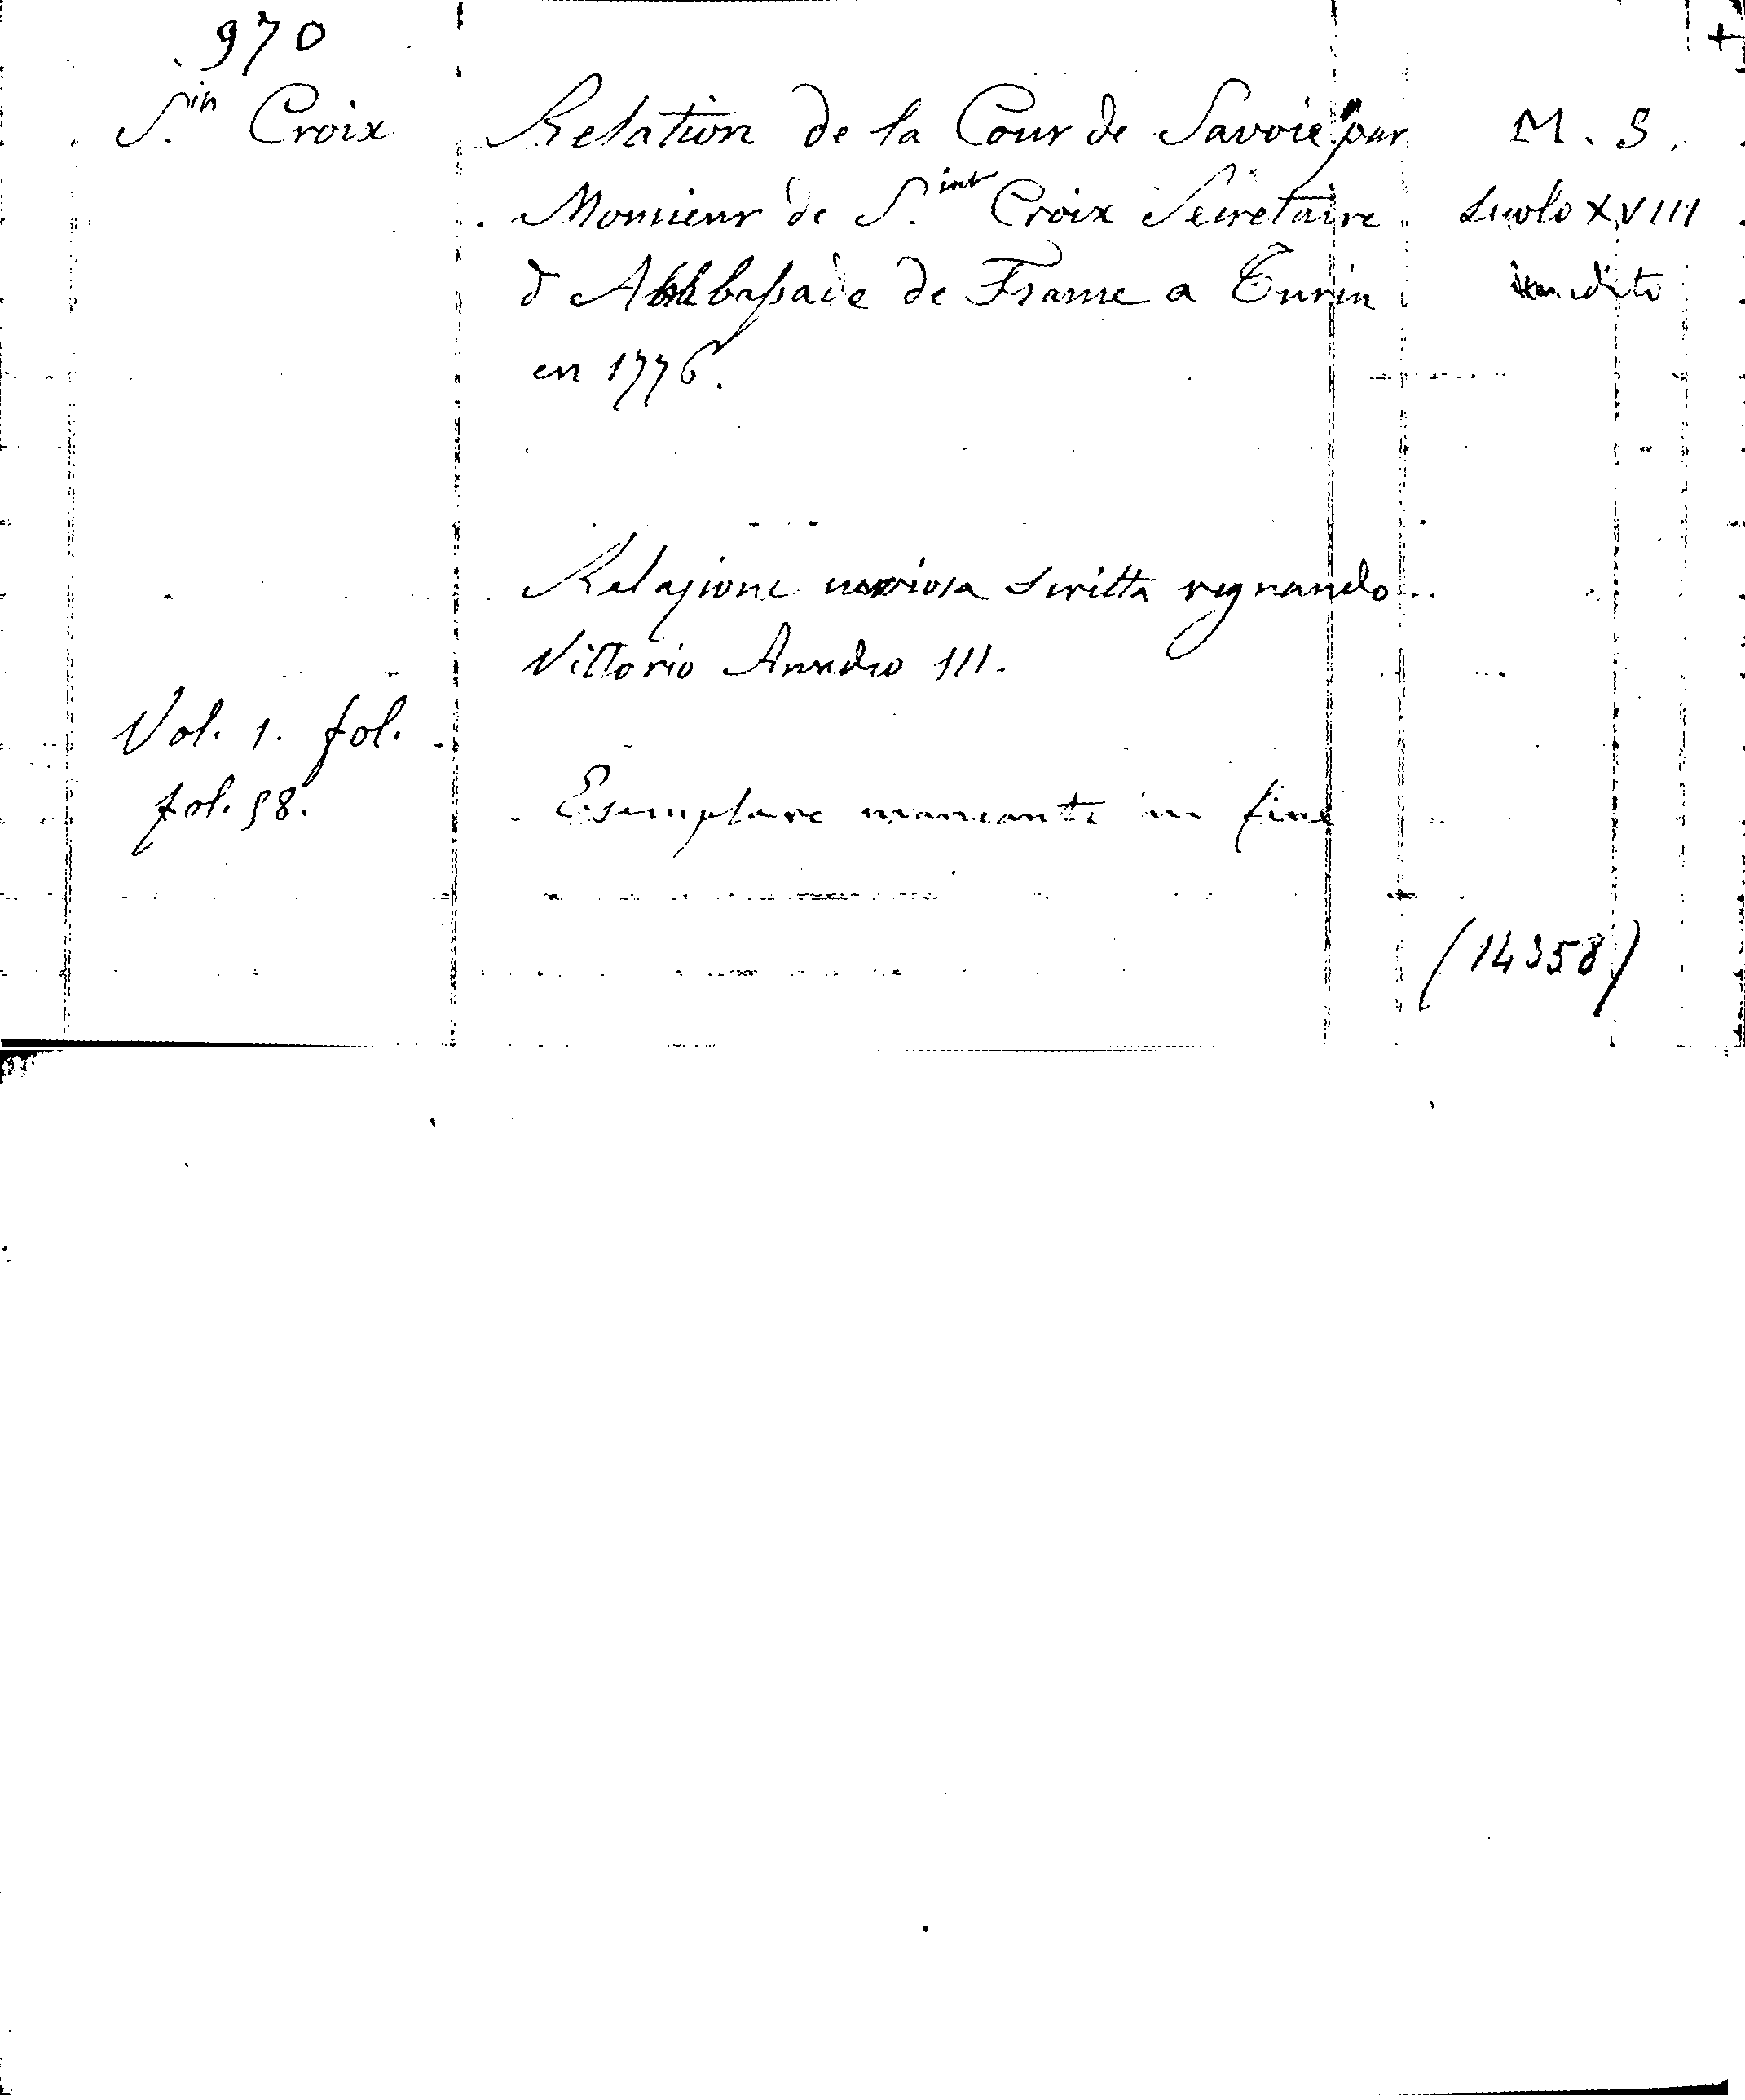 970
S.in Croix
Relation de la Cour de Savoie par
Monsieur de S.int Croix Secretaire
d'Ambassade de France a Turin
en 1776.
M. S.
Secolo XVIII
inedito
Relazione curiosa scritta regnando
Vittorio Amedeo III.
Vol. 1. fol.
fol. 58.
Esemplare mancante in fine
(14358)
+